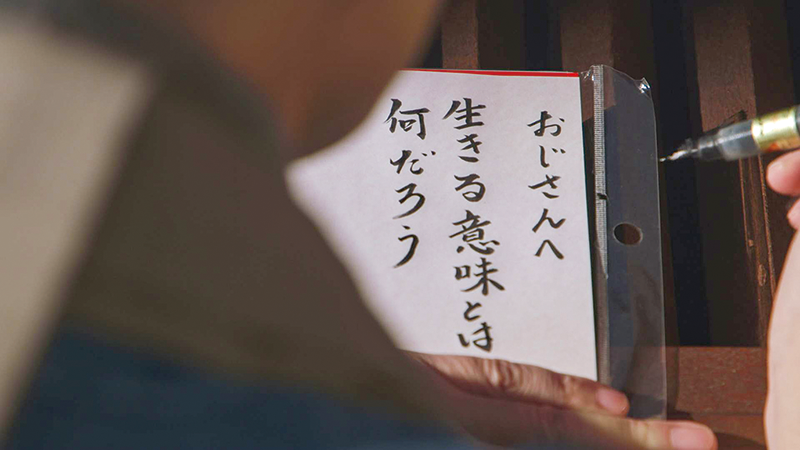 おじさんへ
生きる意味とは
何だろう